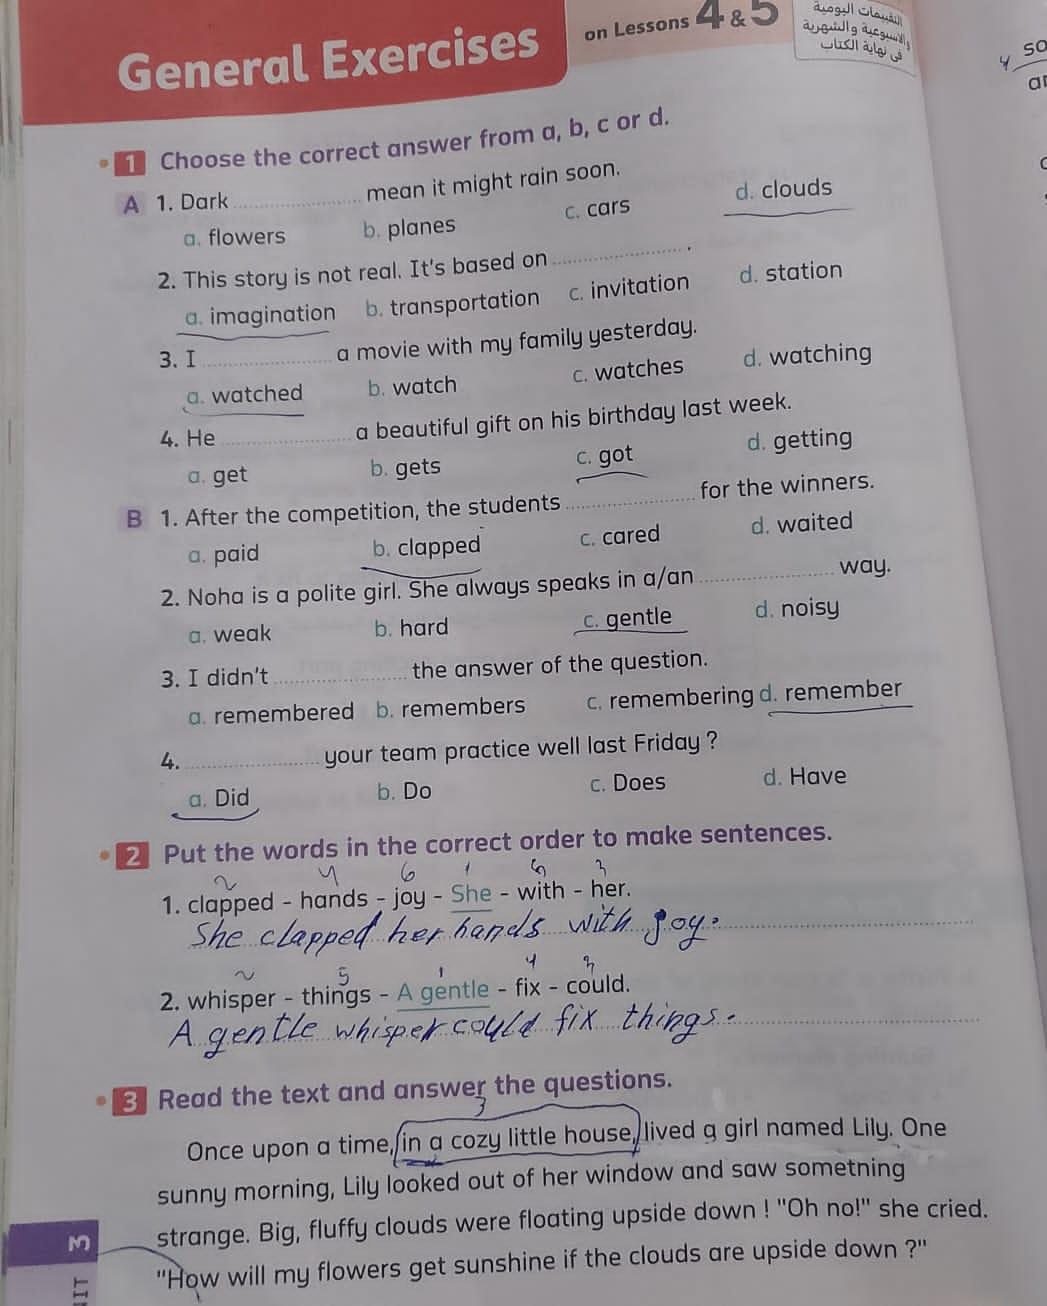 General Exercises
on Lessons 4 & 5
التقييمات اليومية
والأسبوعية والشهرية
في نهاية الكتاب
so
4
1 Choose the correct answer from a, b, c or d.
A 1. Dark .................... mean it might rain soon.
a. flowers b. planes c. cars d. clouds
2. This story is not real. It's based on .................... .
a. imagination b. transportation c. invitation d. station
3. I .................... a movie with my family yesterday.
a. watched b. watch c. watches d. watching
4. He .................... a beautiful gift on his birthday last week.
a. get b. gets c. got d. getting
B 1. After the competition, the students .................... for the winners.
a. paid b. clapped c. cared d. waited
2. Noha is a polite girl. She always speaks in a/an .................... way.
a. weak b. hard c. gentle d. noisy
3. I didn't .................... the answer of the question.
a. remembered b. remembers c. remembering d. remember
4. .................... your team practice well last Friday ?
a. Did b. Do c. Does d. Have
2 Put the words in the correct order to make sentences.
2 4 6 1 5 3
1. clapped - hands - joy - She - with - her.
She clapped her hands with joy.
2 5 1 4 3
2. whisper - things - A gentle - fix - could.
A gentle whisper could fix things.
3 Read the text and answer the questions.
3
Once upon a time, in a cozy little house, lived a girl named Lily. One
sunny morning, Lily looked out of her window and saw something
strange. Big, fluffy clouds were floating upside down ! "Oh no!" she cried.
"How will my flowers get sunshine if the clouds are upside down ?"
3